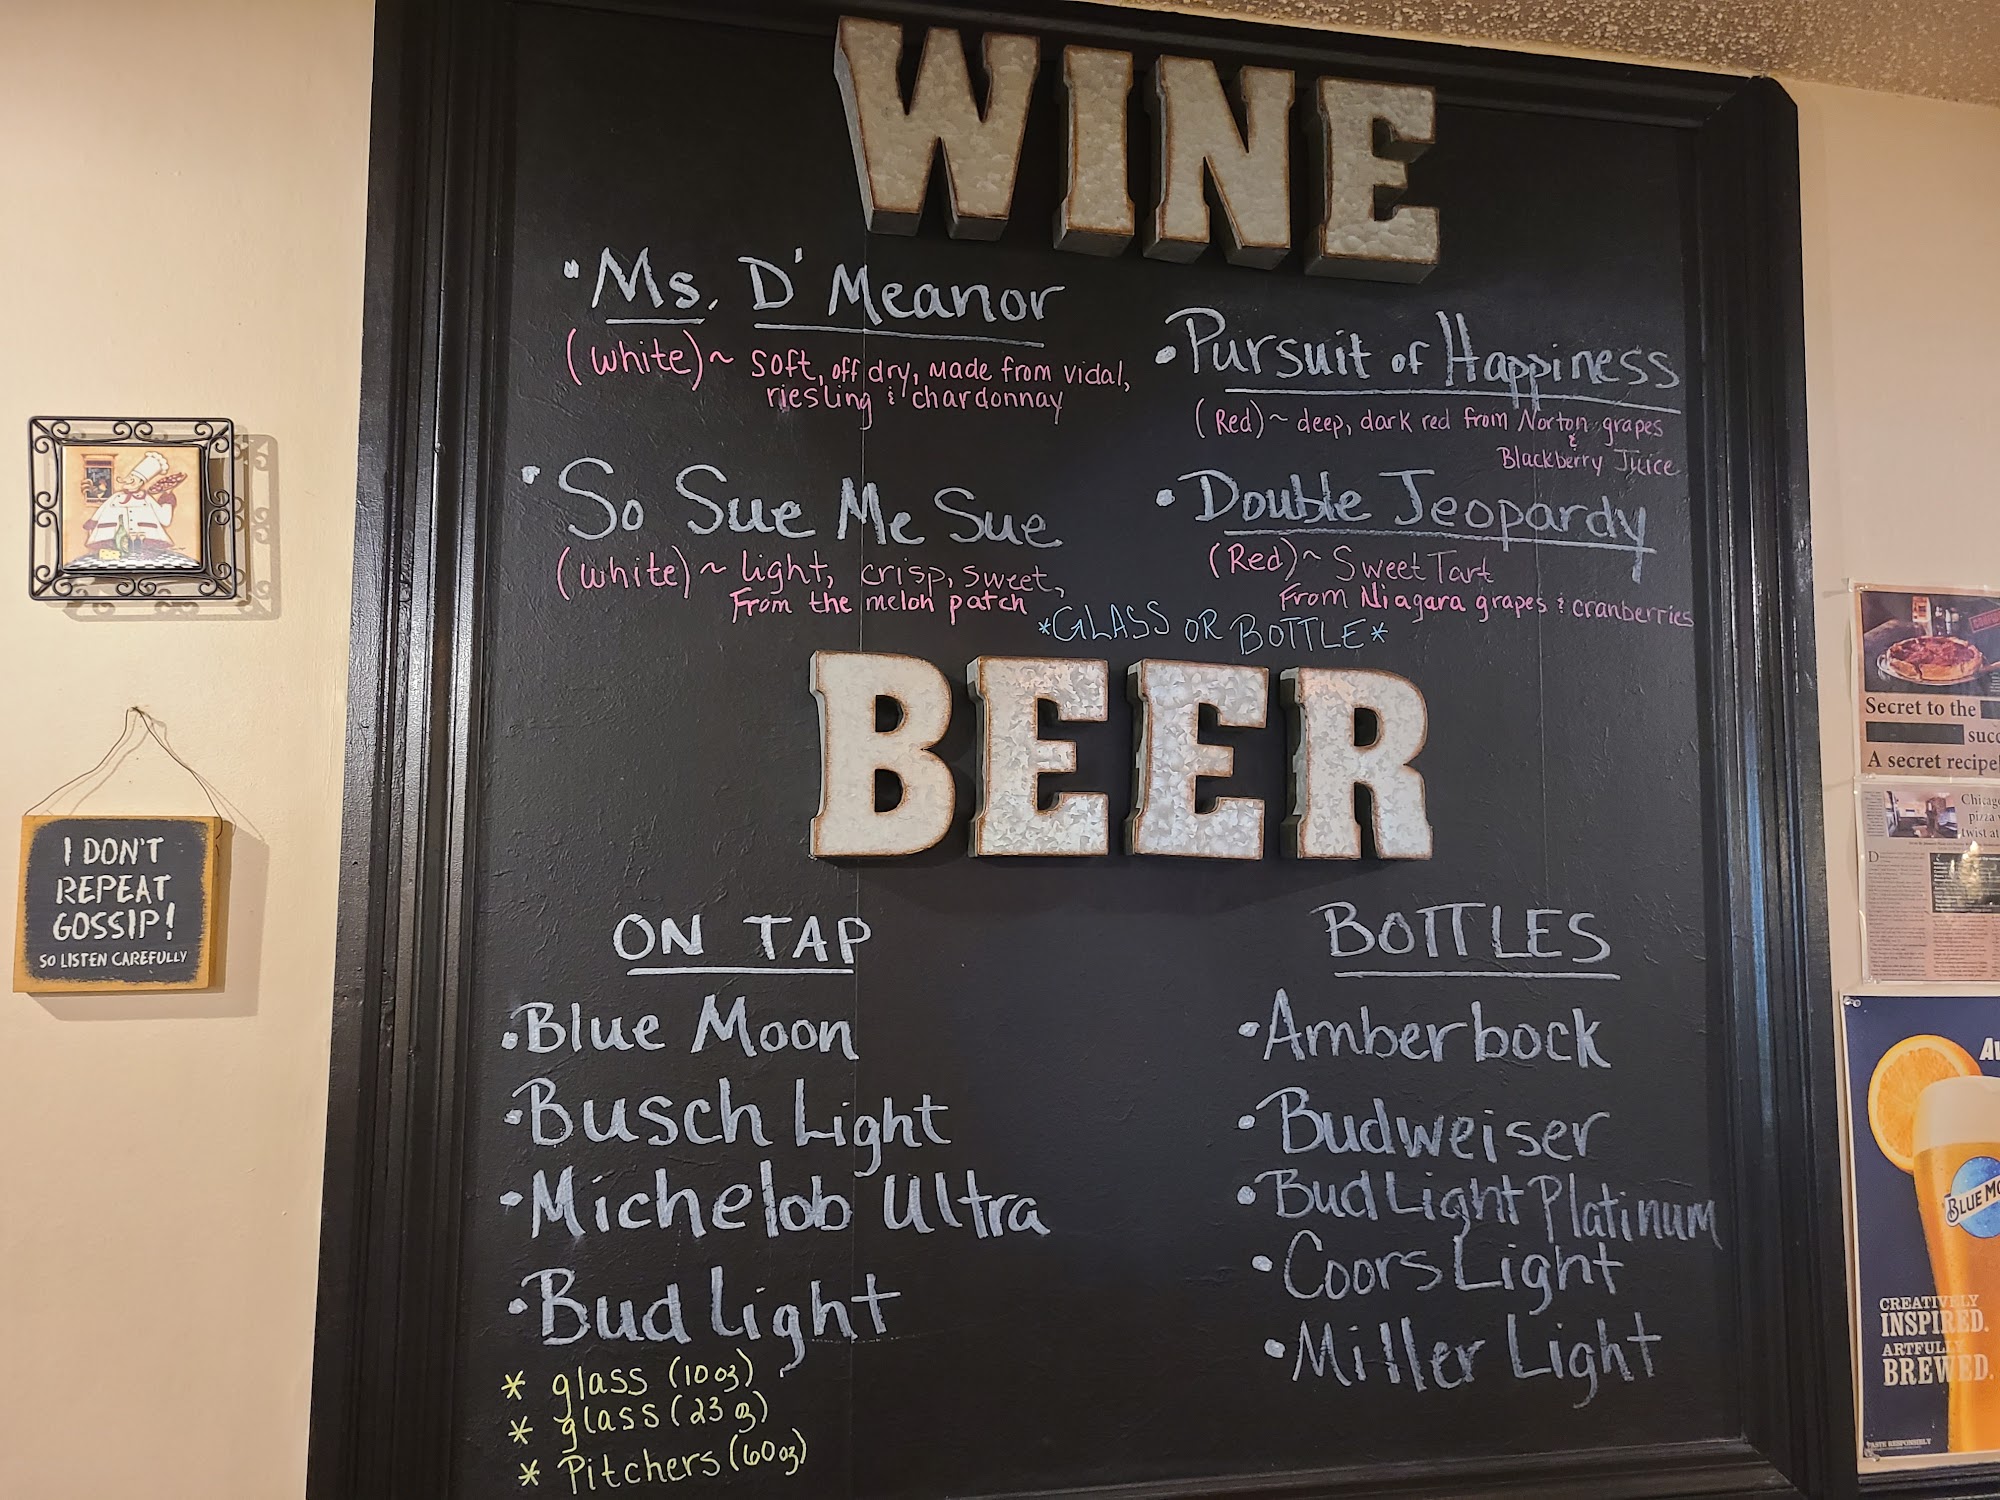 WINE
•Ms. D'Meanor
(white)~ soft, off dry, made from vidal,
riesling & chardonnay
•So Sue Me Sue
(white)~ light, crisp, sweet,
From the melon patch
•Pursuit of Happiness
(Red)~ deep, dark red from Norton grapes
&
Blackberry Juice
•Double Jeopardy
(Red)~ Sweet Tart
From Niagara grapes & cranberries
*GLASS OR BOTTLE*
BEER
ON TAP
•Blue Moon
•Busch Light
•Michelob Ultra
•Bud Light
* glass (10oz)
* glass (23oz)
* Pitchers (60oz)
BOTTLES
•Amberbock
•Budweiser
•Bud Light Platinum
•Coors Light
•Miller Light
I DON'T
REPEAT
GOSSIP!
SO LISTEN CAREFULLY
Secret to the
A secret recipe
pizza
twist at
BLUE
CREATIVELY
INSPIRED.
ARTFULLY
BREWED.
TASTE RESPONSIBLY